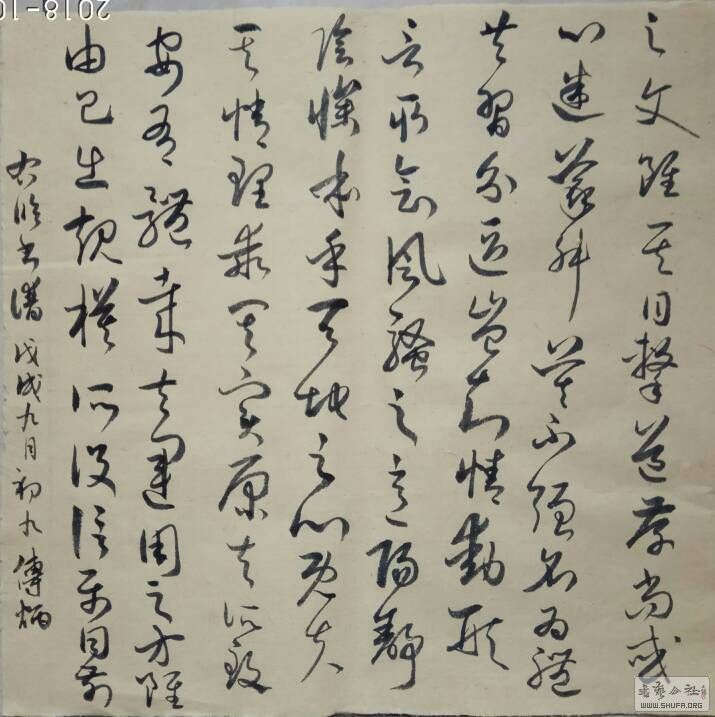 2018-10
之文雖其目擊道存尚或
心迷議舛莫不强名為體
共習分區豈知情動形
言取會風騷之意陽舒
陰慘本乎天地之心既失
其情理乖其實原夫所致
安有體哉夫運用之方雖
由己出規模所設信屬目前
右臨書譜戊戌九月初九傳炳
書藝公社
WWW.SHUFA.ORG